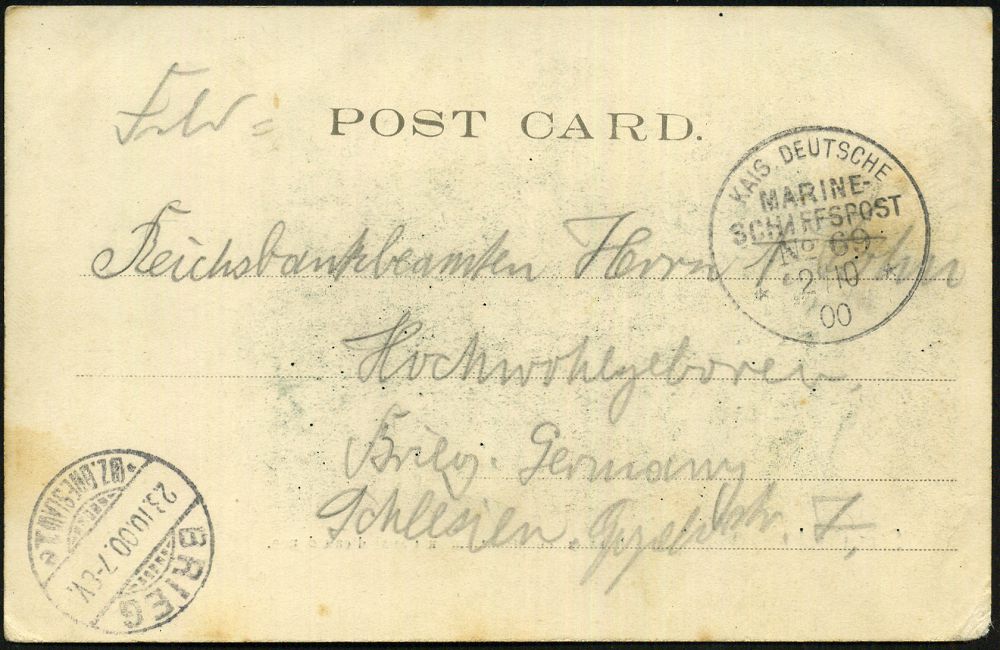 Feld = POST CARD.
KAIS. DEUTSCHE
MARINE-
SCHIFFSPOST
No 69
* 2 | 10 *
00
Reichsbankbeamten Herrn
Hochwohlgeboren,
Brieg. Germany
Schlesien. 7,
BRIEG
23.10.00.7-8V.
(BZ.BRESLAU)